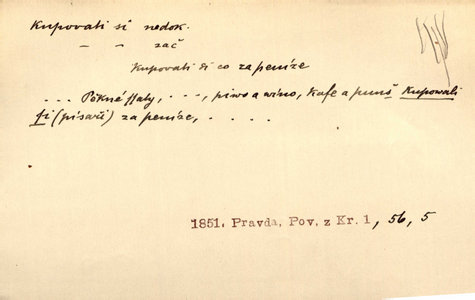 Kupovati si nedok.
– – zač
Kupovati si co za peníze
... Pěkné ssaty, . . ., piwo a wíno, kafe a punš kupowali
si (písaři) za peníze, . . . .
1851. Pravda, Pov. z Kr. 1, 56, 5